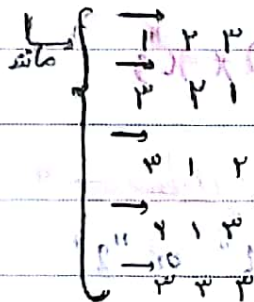 مانند
۱ ۲ ۳
۳ ۲ ۱
۳ ۱ ۲
۲ ۱ ۳
۳ ۳ ۳